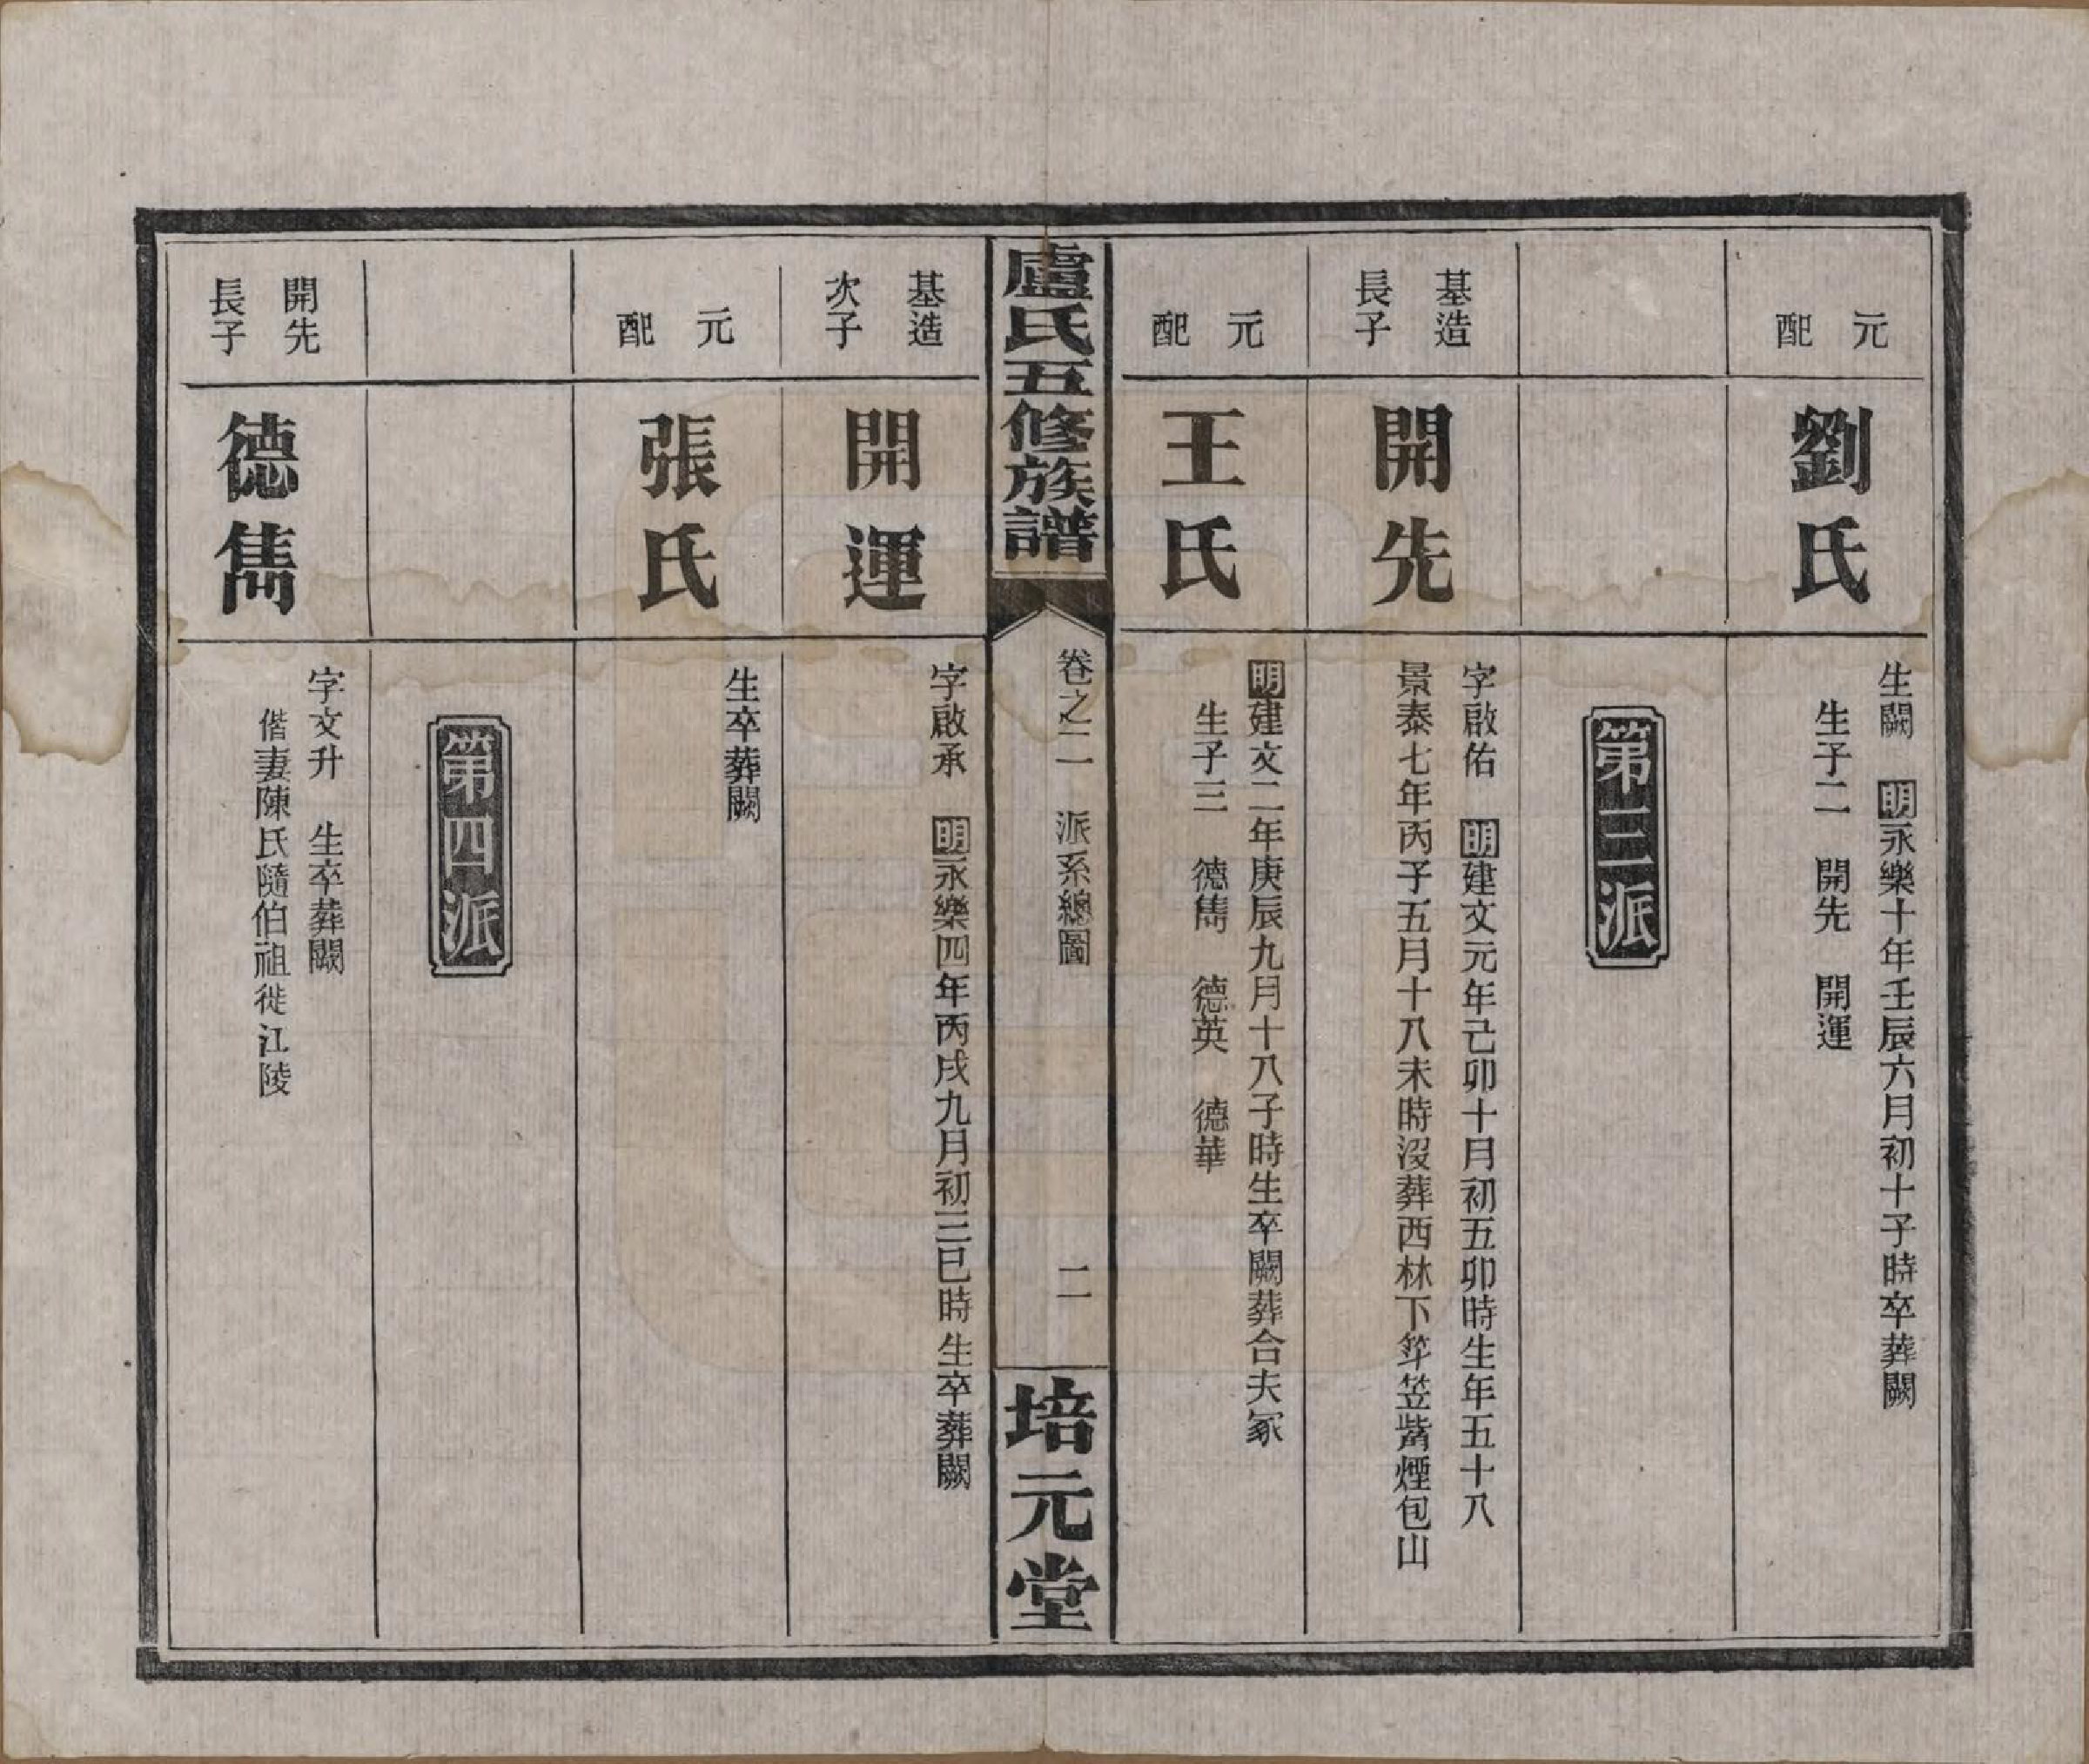 元
配
劉氏
生闕　明永樂十年壬辰六月初十子時卒葬闕
生子二　開先　開運
第三派
基造
長子
開先
字啟佑　明建文元年己卯十月初五卯時生年五十八
景泰七年丙子五月十八未時沒葬西林下笄笠觜煙包山
元
配
王氏
明建文二年庚辰九月十八子時生卒闕葬合夫冢
生子三　德雋　德英　德華
盧氏五修族譜
卷之二　派系總圖
二
培元堂
基造
次子
開運
字啟承　明永樂四年丙戌九月初三巳時生卒葬闕
元
配
張氏
生卒葬闕
第四派
開先
長子
德雋
字文升　生卒葬闕
偕妻陳氏隨伯祖徙江陵